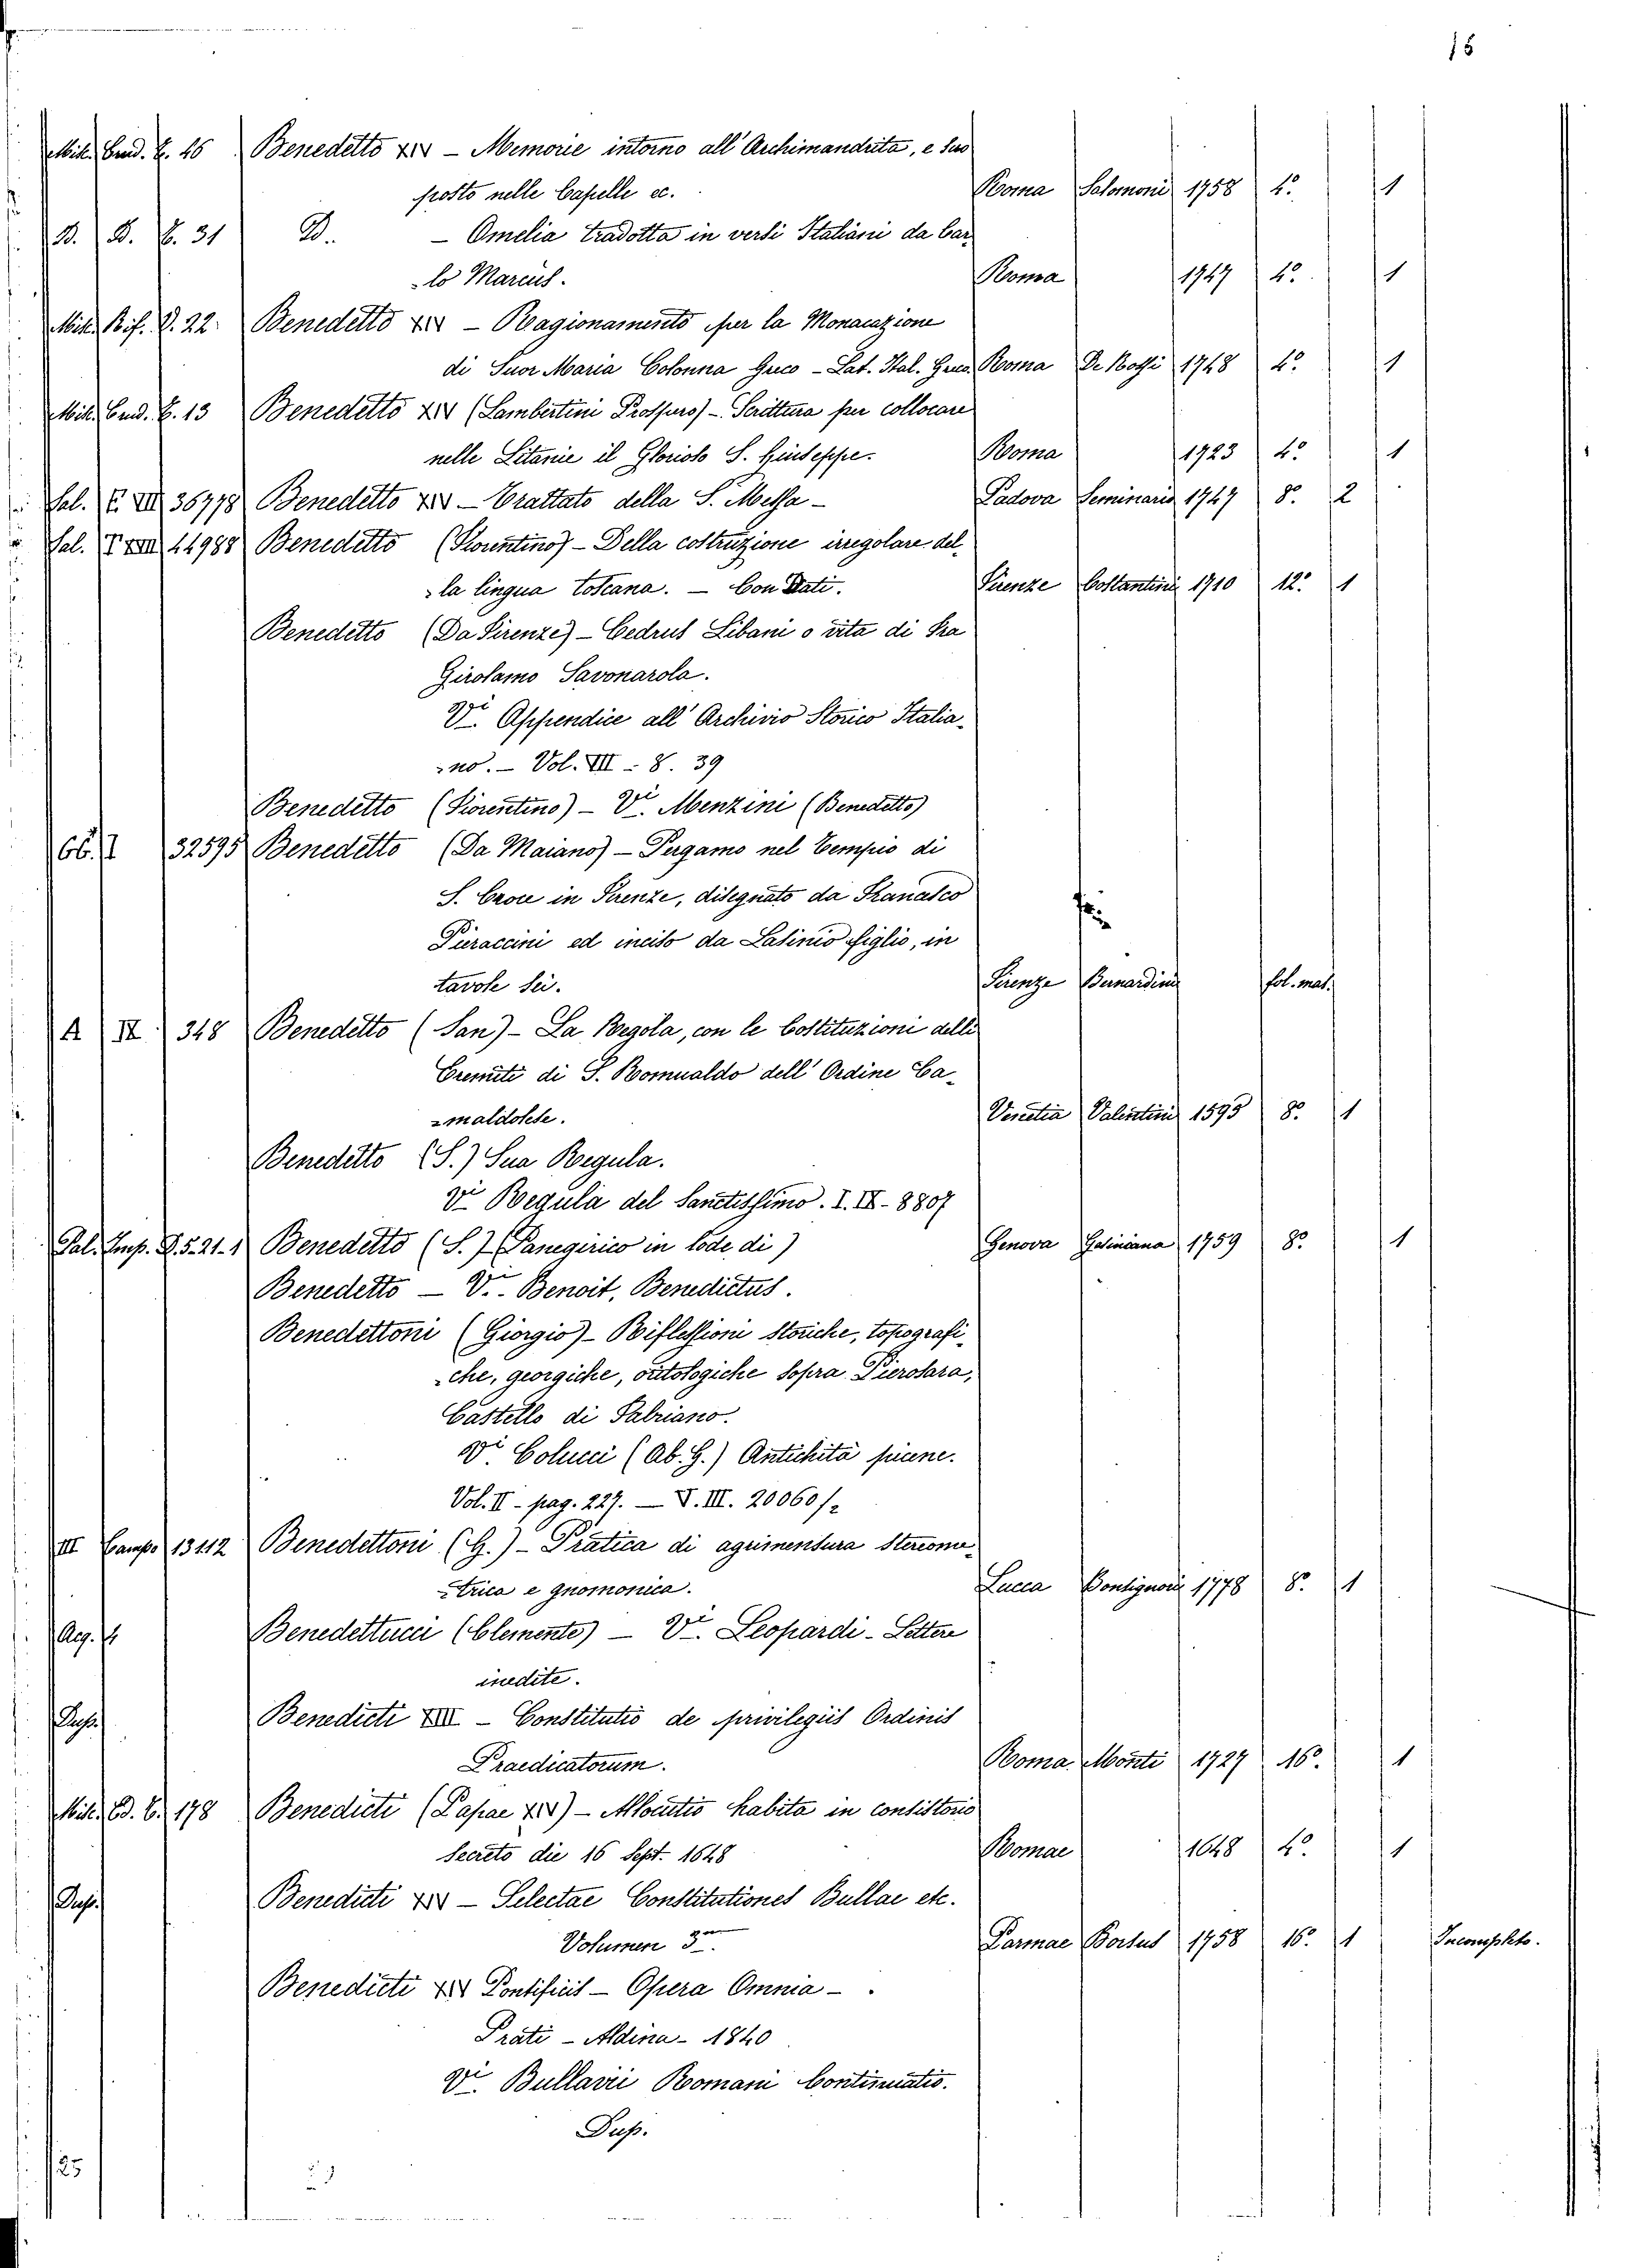 15
Misc. Cred. C. 46 Benedetto XIV – Memorie intorno all'Archimandrita, e suo
posto nelle Capelle ec. Roma Salomoni 1758 4.° 1
B. B. 6. 31 D. – Omelia tradotta in versi Italiani da Car=
=lo Marcus. Roma 1747 4.° 1
Misc. Rif. D. 22. Benedetto XIV – Ragionamento per la Monacazione
di Suor Maria Colonna Greco – Lat. Ital. Greco. Roma De Rossi 1748 4.° 1
Misc. Cred. C. 13 Benedetto XIV (Lambertini Prospero) – Scrittura per collocare
nelle Litanie il Glorioso S. Giuseppe. Roma 1723 4.° 1
Sal. C. VII 36778 Benedetto XIV – Trattato della S. Messa – Padova Seminario 1747 8.° 2
Sal. T XVII 44988 Benedetto (Fiorentino) – Della costruzione irregolare del=
=la lingua toscana. – Con Dati. Firenze Costantini 1710 12.° 1
Benedetto (Da Firenze) – Cedrus Libani o vita di Fra
Girolamo Savonarola.
Vi. Appendice all'Archivio Storico Italia=
=no. – Vol. VII – 8. 39
Benedetto (Fiorentino) – Vi. Menzini (Benedetto)
66. 32595 Benedetto (Da Maiano) – Pergamo nel Tempio di
S. Croce in Firenze, disegnato da Franasco
Piraccini ed inciso da Lasinio figlio, in
tavole sei. Firenze Bernardini fol. mas.
A II 348 Benedetto (San) – La Regola, con le Costituzioni delli
Eremiti di S. Romualdo dell'Ordine Ca=
=maldolese. Venetia Valentini 1595 8.° 1
Benedetto (S.) Sua Regula.
Vi Regula del Sanctissimo. I. IX. – 8807
Pal. Imp. D. 5. 21. 1 Benedetto (S.) (Panegirico in lode di) Genova Gesiniana 1759 8.° 1
Benedetto – Vi. Benoit, Benedictus.
Benedettoni (Giorgio) – Riflessioni storiche, topografi=
=che, georgiche, ortologiche sopra Pierosara,
Castello di Fabriano.
Vi. Colucci (Ab. G.) Antichità picene.
Vol. II – pag. 227. – V. III. 20060/2
III Camps 13112 Benedettoni (G.) – Pratica di agrimensura stereome=
=trica e gnomonica. Lucca Bonsignori 1778 8.° 1
Acq. Benedettucci (Clemente) – Vi. Leopardi – Lettere
inedite.
Dup. Benedicti XIII – Constitutio de privilegiis Ordinis
Praedicatorum. Roma Monti 1727 16.° 1
Misc. Ed. C. 178 Benedicti (Papae XIV) – Allocutio habita in consistorio
secreto die 16 Sept. 1648 Romae 1648 4.° 1
Dup. Benedicti XIV – Selectae Constitutiones Bullae etc.
Volumen 3.m Parmae Borsus 1758 16.° 1 Incompleto.
Benedicti XIV Pontificis – Opera Omnia – .
Prati – Aldina – 1840
Vi. Bullarii Romani Continuatio.
Dup.
25